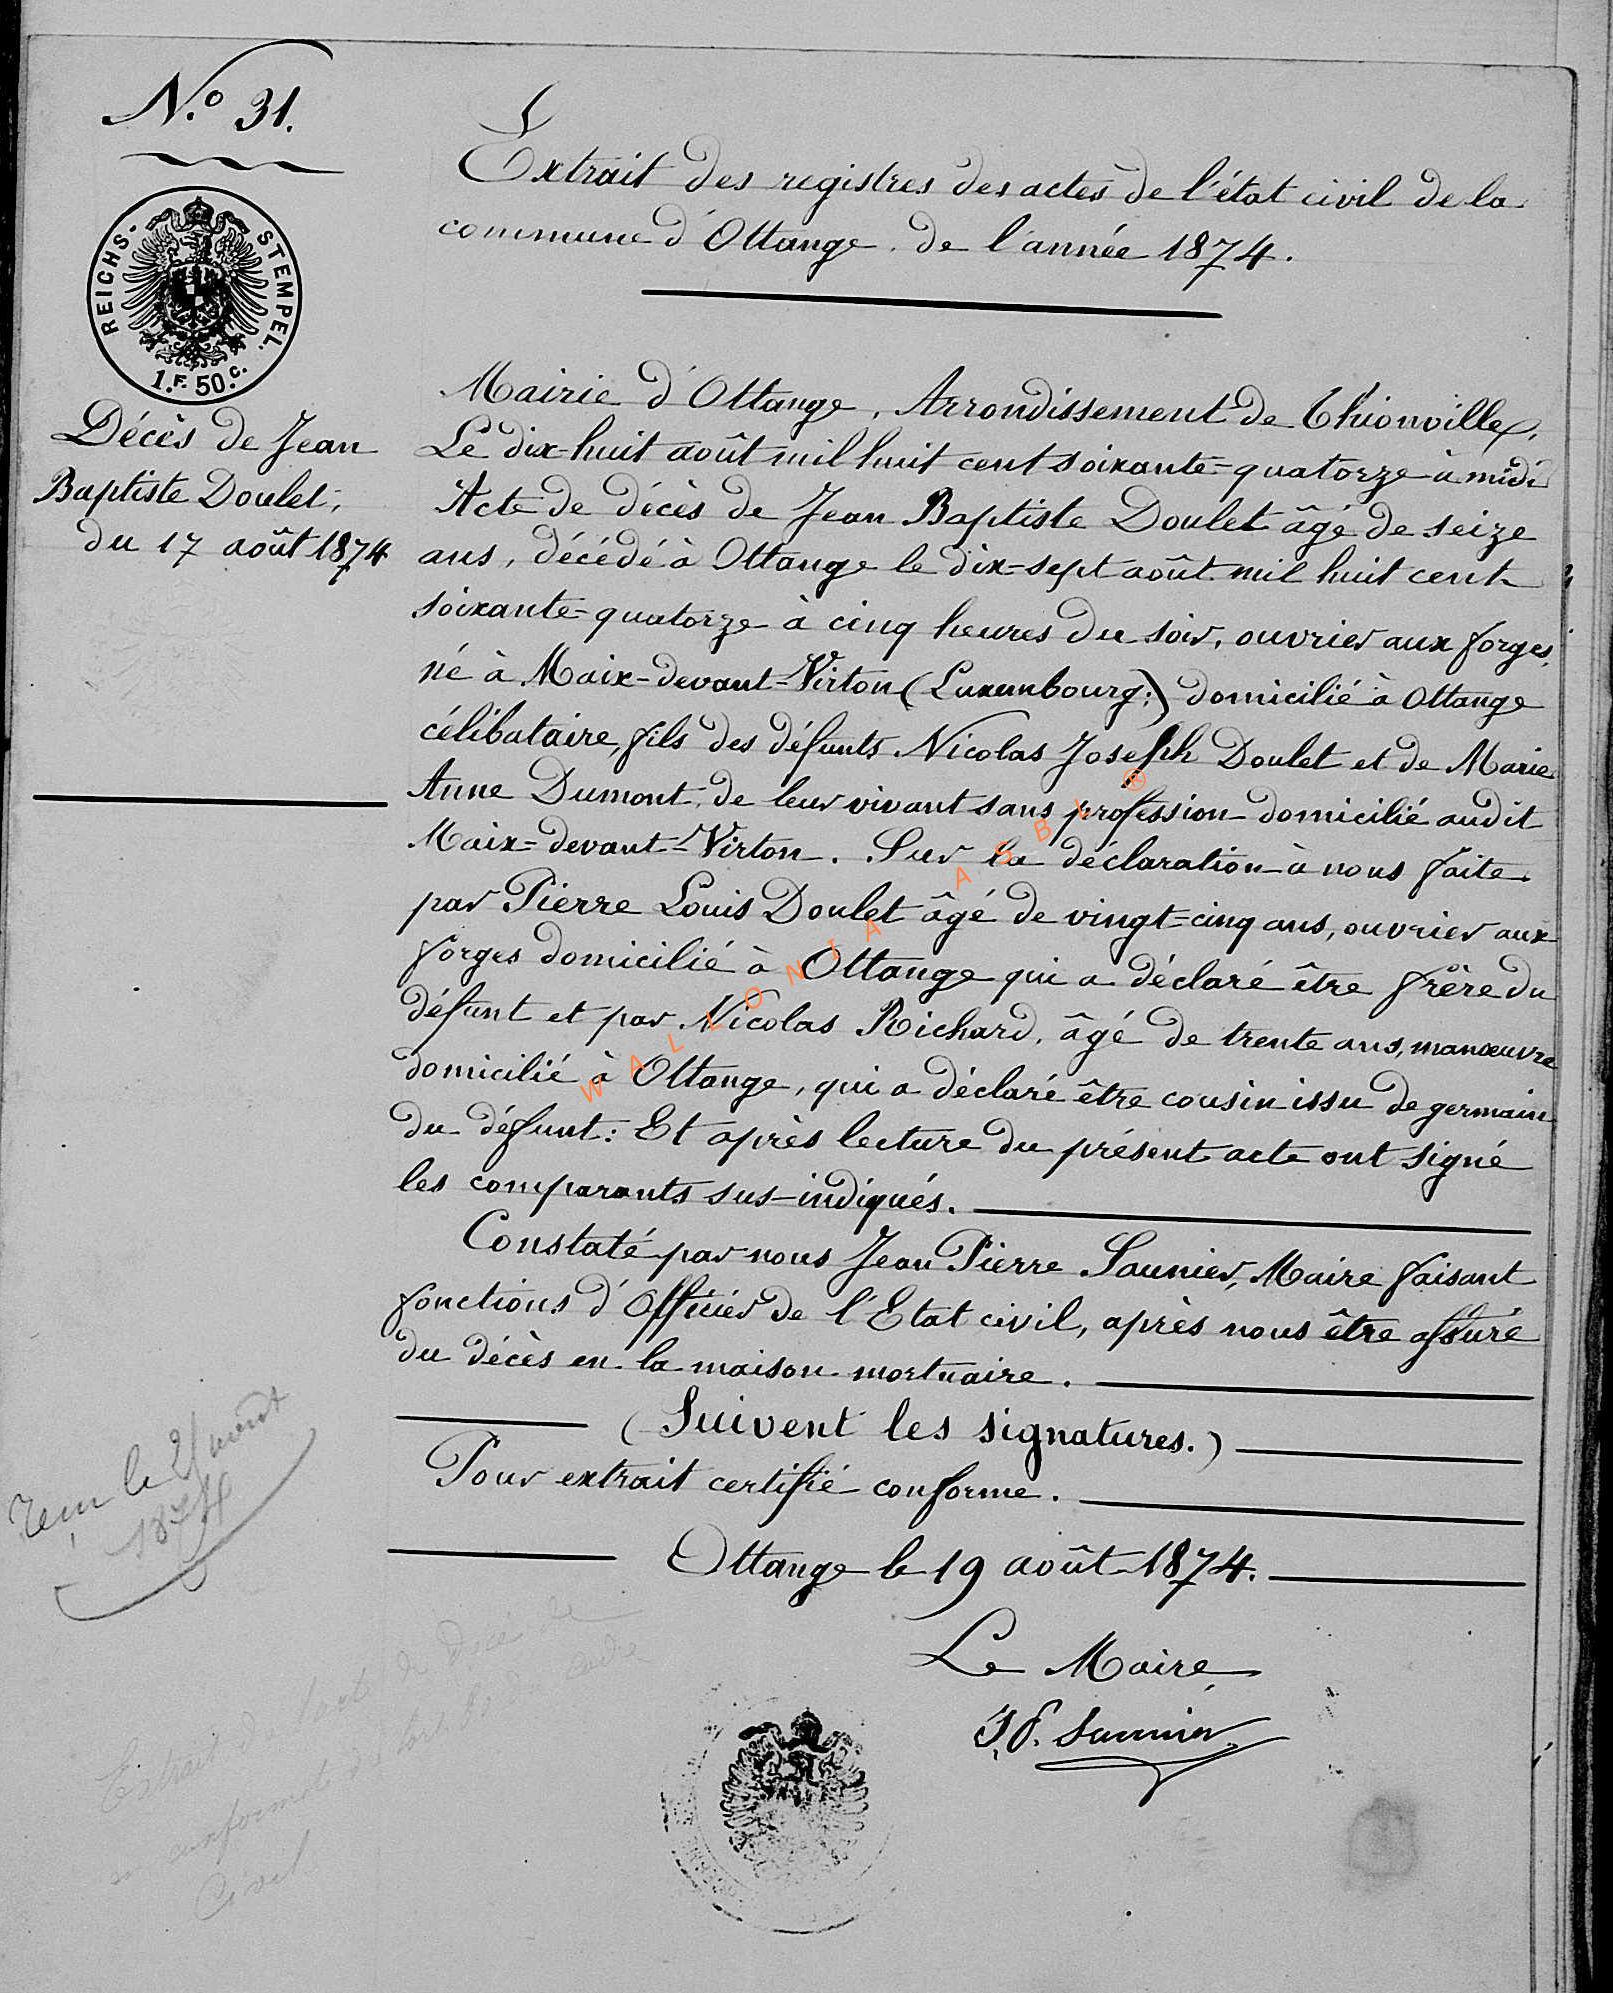 N.° 31.
REICHS-STEMPEL.
1.F. 50.C.
Décès de Jean
Baptiste Doulet,
du 17 août 1874
Extrait des registres des actes de l'état civil de la
commune d'Ottange de l'année 1874.
Mairie d'Ottange, Arrondissement de Thionville,
Le dix-huit août mil huit cent soixante-quatorze à midi
Acte de décès de Jean Baptiste Doulet âgé de seize
ans, décédé à Ottange le dix-sept août mil huit cent
soixante-quatorze à cinq heures du soir, ouvrier aux forges,
né à Maix-devant-Virton (Luxembourg;) domicilié à Ottange
célibataire, fils des défunts Nicolas Joseph Doulet et de Marie
Anne Dumont, de leur vivant sans profession domicilié audit
Maix-devant-Virton. Sur la déclaration à nous faite
par Pierre Louis Doulet âgé de vingt-cinq ans, ouvrier aux
forges domicilié à Ottange qui a déclaré être frère du
défunt et par Nicolas Richard, âgé de trente ans, manœuvre
domicilié à Ottange, qui a déclaré être cousin issu de germain
du défunt: Et après lecture du présent acte ont signé
les comparants sus-indiqués.
Constaté par nous Jean Pierre Saunier, Maire faisant
fonctions d'Officier de l'Etat civil, après nous être assuré
du décès en la maison mortuaire.
(Suivent les signatures.)
Pour extrait certifié conforme.
Ottange le 19 août 1874.
Le Maire
J.P. Saunier
WALLONIA ASBL ®
le 21 août
1874
Extrait de l'acte de décès de
conforme
Civil